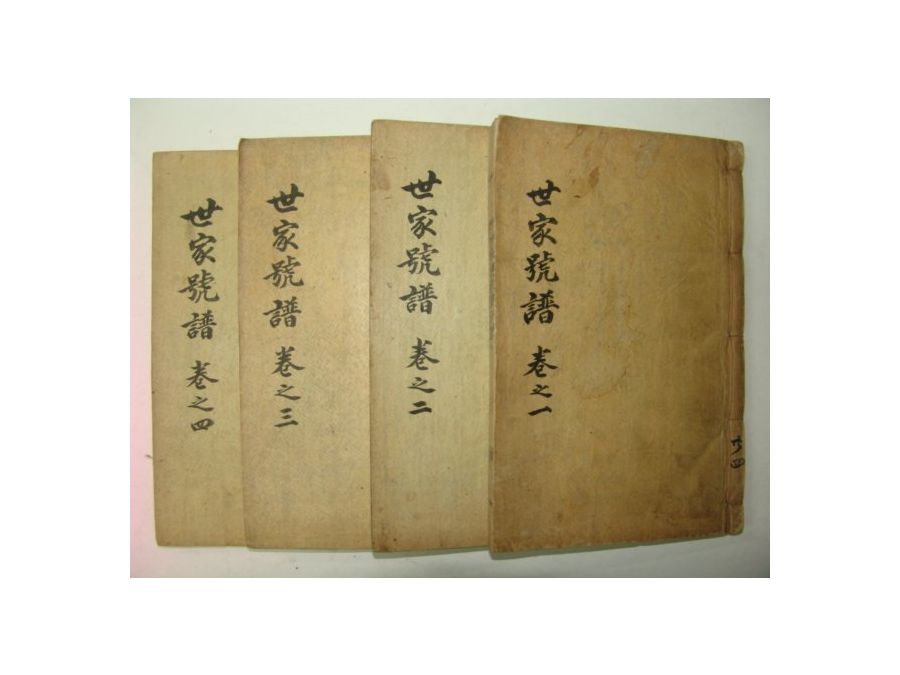 世家號譜 卷之一
共四
世家號譜 卷之二
世家號譜 卷之三
世家號譜 卷之四